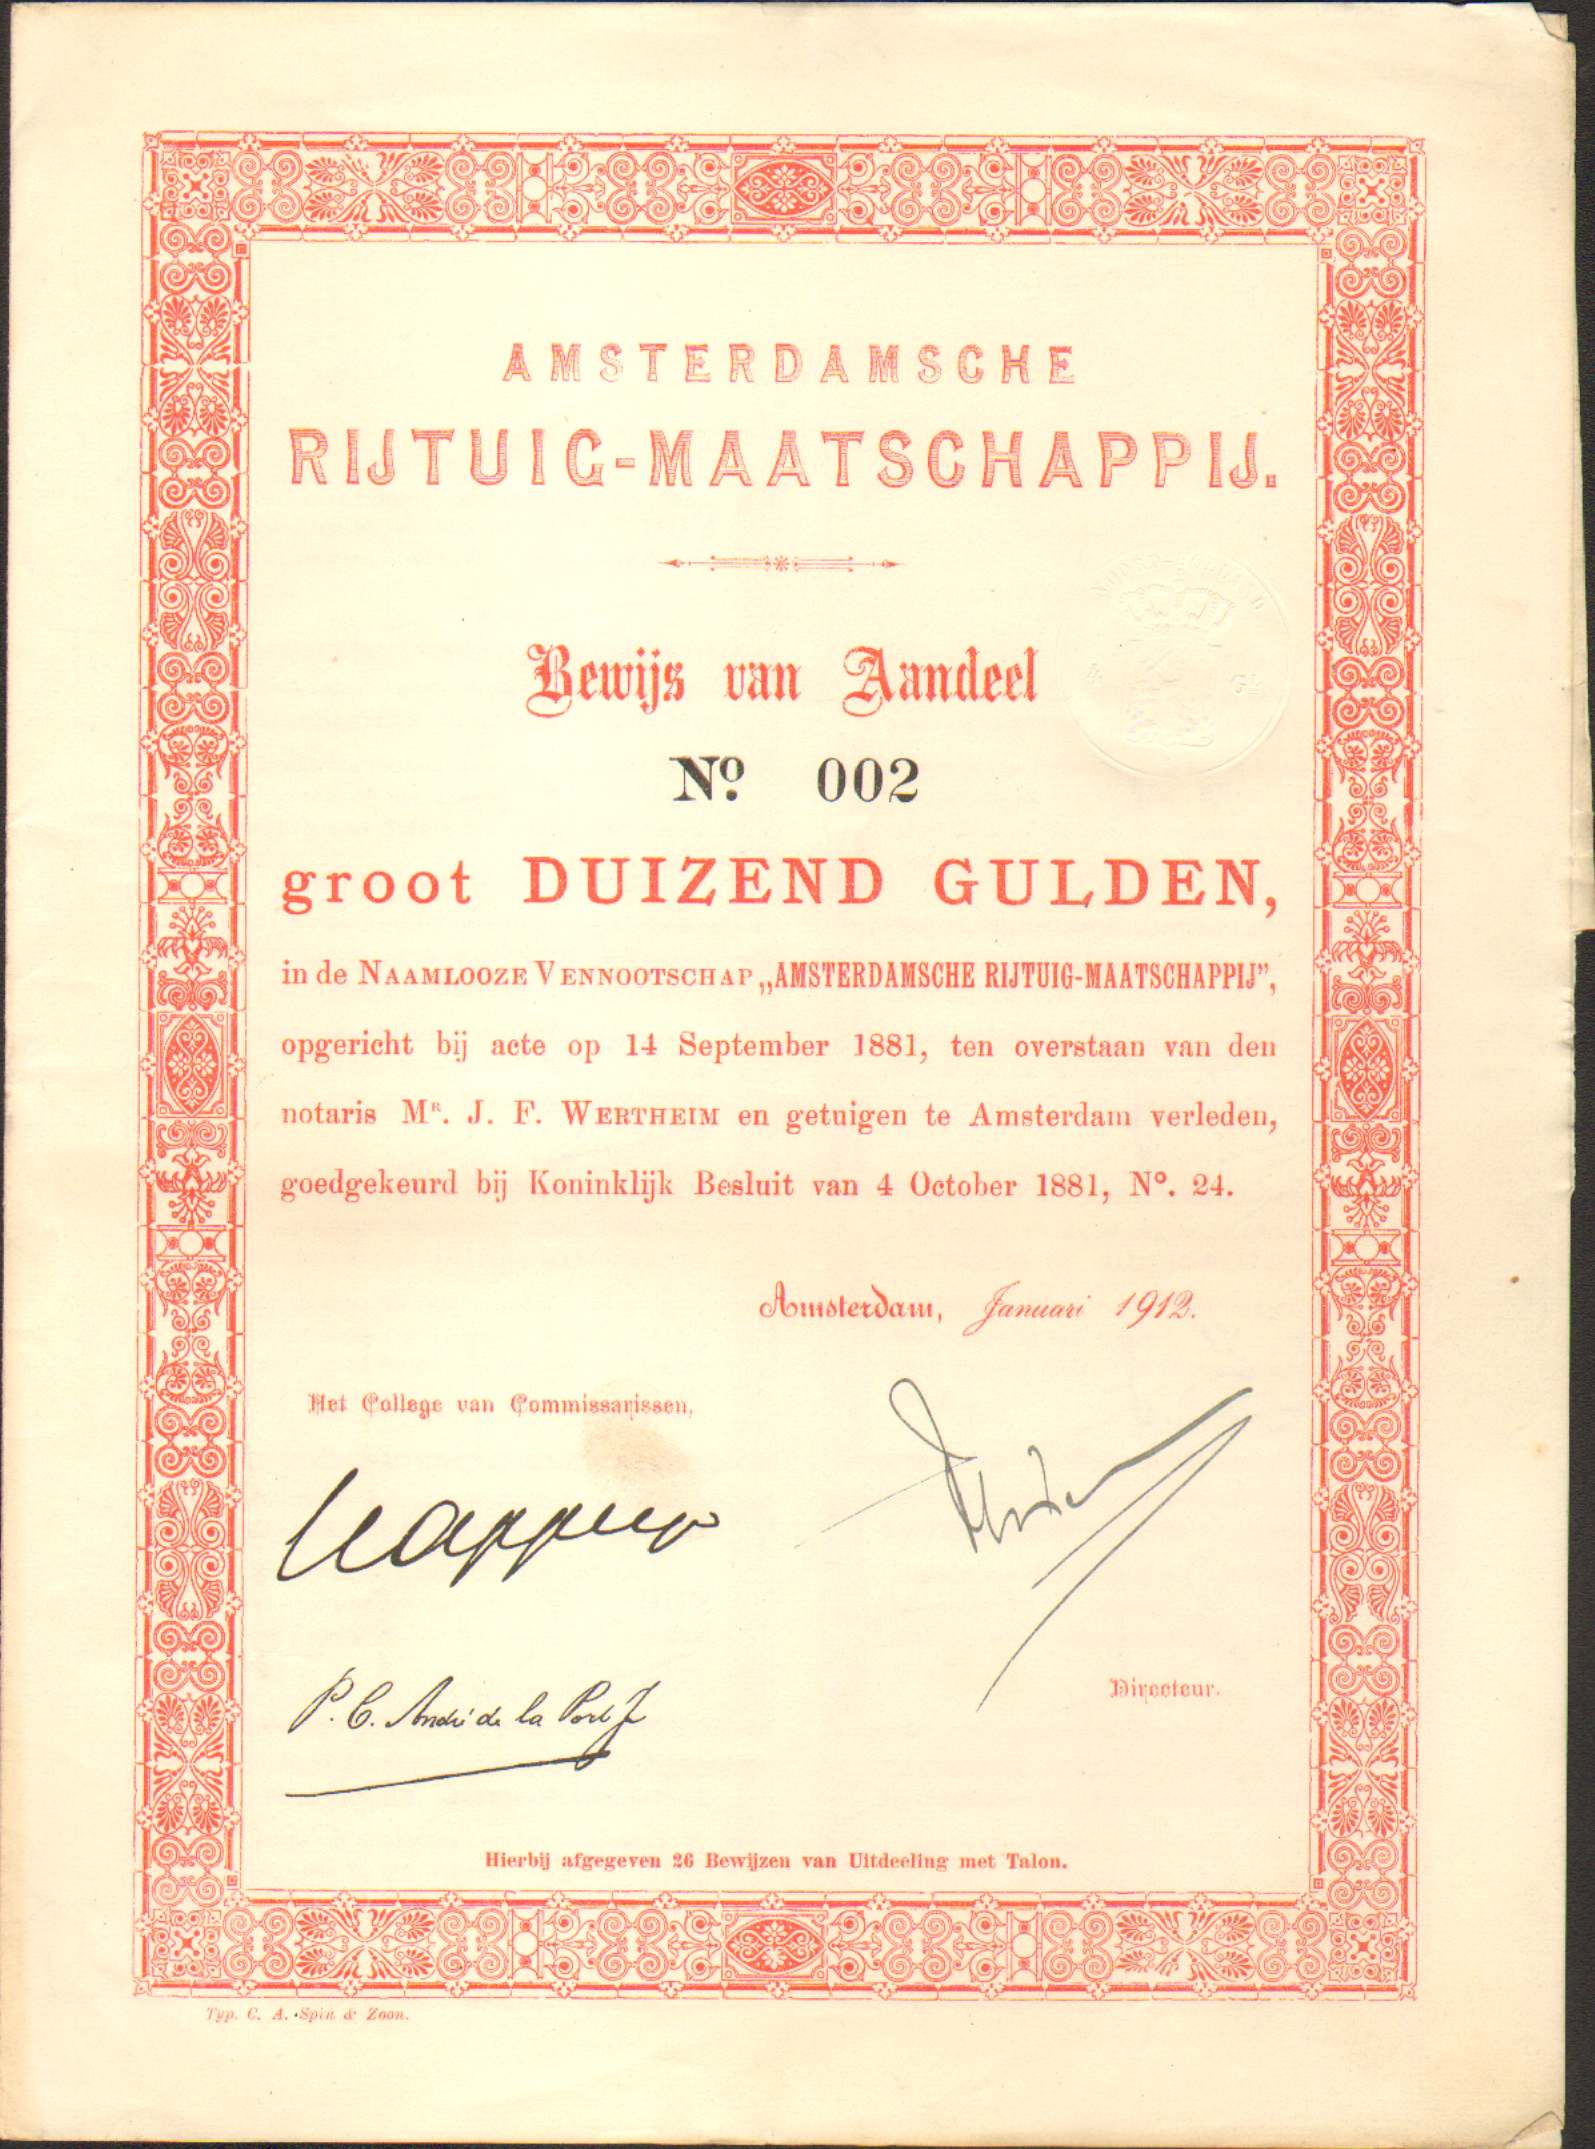 AMSTERDAMSCHE
RIJTUIG-MAATSCHAPPIJ.
Bewijs van Aandeel
Nº. 002
groot DUIZEND GULDEN,
in de NAAMLOOZE VENNOOTSCHAP „AMSTERDAMSCHE RIJTUIG-MAATSCHAPPIJ”,
opgericht bij acte op 14 September 1881, ten overstaan van den
notaris Mr. J. F. WERTHEIM en getuigen te Amsterdam verleden,
goedgekeurd bij Koninklijk Besluit van 4 October 1881, Nº. 24.
Amsterdam, Januari 1912.
Het College van Commissarissen,
P. C. André de la Porte Jr
Directeur.
Hierbij afgegeven 26 Bewijzen van Uitdeeling met Talon.
Typ. C. A. Spin & Zoon.